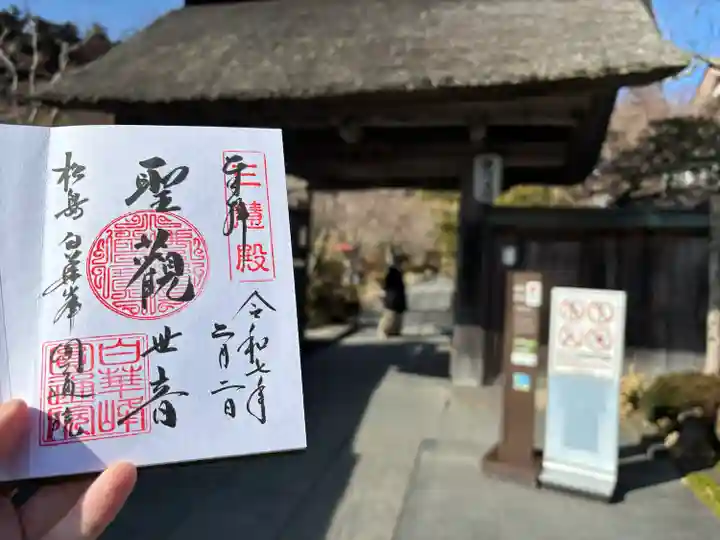 奉拝
三慧殿
令和七年
二月二日
聖觀世音
松島 白華峰 圓通院
白華峰
圓通院